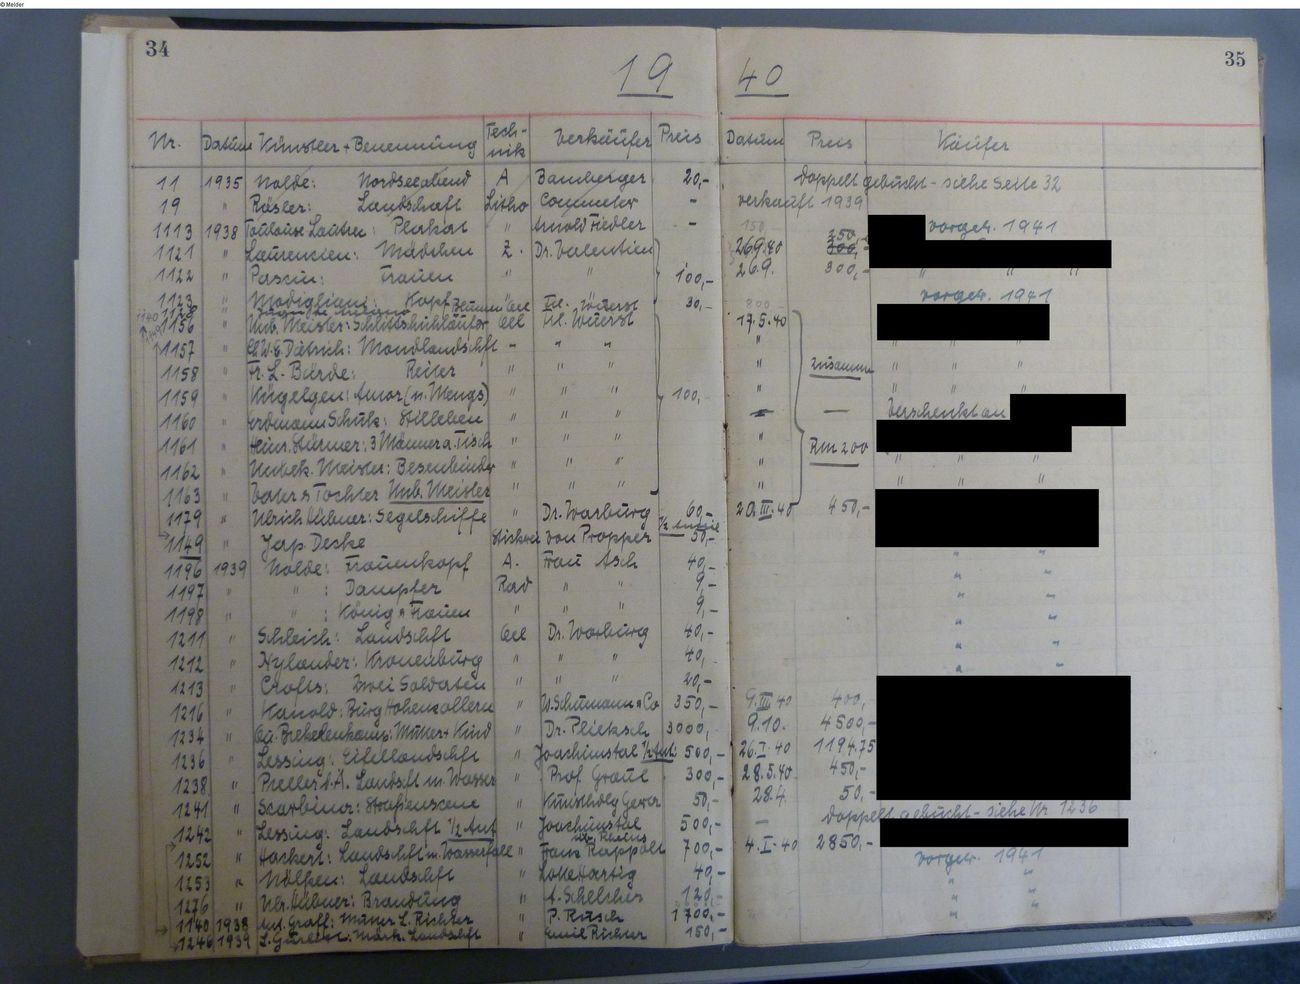 © Melder
34
35
19 40
Nr. Datum Künstler + Benennung Technik Verkäufer Preis Datum Preis Käufer
11 1935 Nolde: Nordseeabend A Bamberger 20,- Doppelt gebucht - siehe Seite 32
19 " Rösler: Landschaft Litho Commeter - verkauft 1939
1113 1938 Toulouse Lautrec: Plakat " Arnold Fiedler - 150,- vorgetr. 1941
1121 " Laurencien: Mädchen Z. Dr. Valentien 26.9.40 350,- 300,-
1122 " Pascin: Frauen " " 100,- 26.9. 300,- " " "
1123 " Modigliani: Kopf " vorgetr. 1941
1128 " Blumen Oel Frl. Wüerst 30,- 800,-
1156 " Unb. Meister: Schlittschuhläufer Oel Frl. Wüerst 17.5.40
1157 " Ch. W. E. Dietrich: Mondlandschft - " " " " " "
1158 " Fr. L. Bürde: Reiter " " " " zusammen
1159 " Kügelgen: Amor (n. Mengs) " " " 100,- " " " "
1160 " Erdmann Schulz: Stilleben " " " - Verschenkt an
1161 " Heinr. Stürmer: 3 Männer a. Tisch " " " " Rm 200
1162 " Unbek. Meister: Besenbinder " " " " " " "
1163 " Vater & Tochter Unb. Meister " " " " " " "
1179 " Ulrich Hübner: Segelschiffe " Dr. Warburg 60,- 20.III.40 450,-
1149 Jap. Decke Stickerei von Propper 1/2 Anteil 50,-
1196 1939 Nolde: Frauenkopf A. Frau Asch 40,- " "
1197 " " : Dampfer Rad " " 9,- " "
1198 " : König & Frauen " " " 9,- " "
1211 " Schleich: Landschft Oel Dr. Warburg 40,- " "
1212 " Nylander: Kronenburg " " " 40,- " "
1213 " Crofts: Zwei Soldaten " " " 20,- " "
1216 " Kanold: Burg Hohenzollern " W. Schumann & Co 350,- 9.III.40 400,-
1234 " Mutter + Kind " Dr. Plietzsch 3000,- 9.10. 4500,-
1236 " Lessing: Eifellandschft " Joachimstal 1/2 Ant: 500,- 26.I.40 1194.75
1238 " Preller d. Ä. Landsft m. Wasser " Prof. Graul 300,- 28.5.40 450,-
1241 " Scarbina: Straßenscene " 50,- 28.4. 50,-
1242 " Lessing: Landschft 1/2 Ant " Joachimstal 500,- - doppelt gebucht - siehe Nr. 1236
1252 " Hackert: Landschft m. Wasserfälle " Frans Rappolt 700,- 4.I.40 2850,-
1253 " Nölken: Landschft " Lotte Hartig 40,- vorgetr. 1941
1276 " Ulr. Hübner: Brandung " A. Schelcher 120,- " "
1140 1938 Ant. Graff: Maler L. Richter " P. Rusch 1700,- " "
1246 1939 Märk. Landschft " Emil Richter 150,- " "